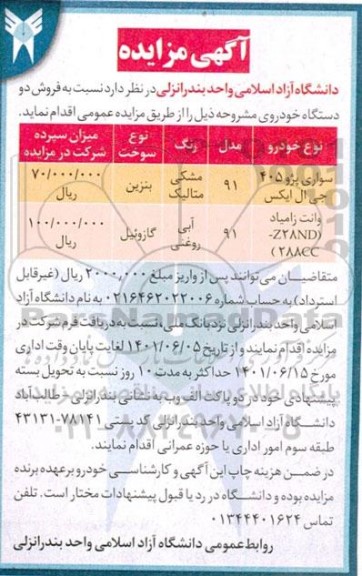 آگهی مزایده
دانشگاه آزاد اسلامی واحد بندرانزلی در نظر دارد نسبت به فروش دو
دستگاه خودروی مشروحه ذیل را از طریق مزایده عمومی اقدام نماید.
نوع خودرو مدل رنگ نوع سوخت میزان سپرده شرکت در مزایده
سواری پژو ۴۰۵ جی ال ایکس ۹۱ مشکی متالیک بنزین ۷۰/۰۰۰/۰۰۰ ریال
وانت زامیاد (Z۲۸ND-۲۸۸CC) ۹۱ آبی روغنی گازوئیل ۱۰۰/۰۰۰/۰۰۰ ریال
متقاضیان می‌توانند پس از واریز مبلغ ۲۰۰۰,۰۰۰ ریال (غیرقابل
استرداد) به حساب شماره ۰۲۱۶۴۶۲۰۲۲۰۰۶ به نام دانشگاه آزاد
اسلامی واحد بندرانزلی نزد بانک ملی، نسبت به دریافت فرم شرکت در
مزایده اقدام نمایند و از تاریخ ۱۴۰۱/۰۶/۰۵ لغایت پایان وقت اداری
مورخ ۱۴۰۱/۰۶/۱۵ حداکثر به مدت ۱۰ روز نسبت به تحویل بسته
پیشنهادی خود در دو پاکت الف و ب به نشانی بندرانزلی - طالب‌آباد
دانشگاه آزاد اسلامی واحد بندرانزلی کد پستی ۷۸۱۴۱-۴۳۱۳۱
طبقه سوم امور اداری یا حوزه عمرانی اقدام نمایند.
در ضمن هزینه چاپ این آگهی و کارشناسی خودرو برعهده برنده
مزایده بوده و دانشگاه در رد یا قبول پیشنهادات مختار است. تلفن
تماس ۰۱۳۴۴۴۰۱۶۲۴
روابط عمومی دانشگاه آزاد اسلامی واحد بندرانزلی